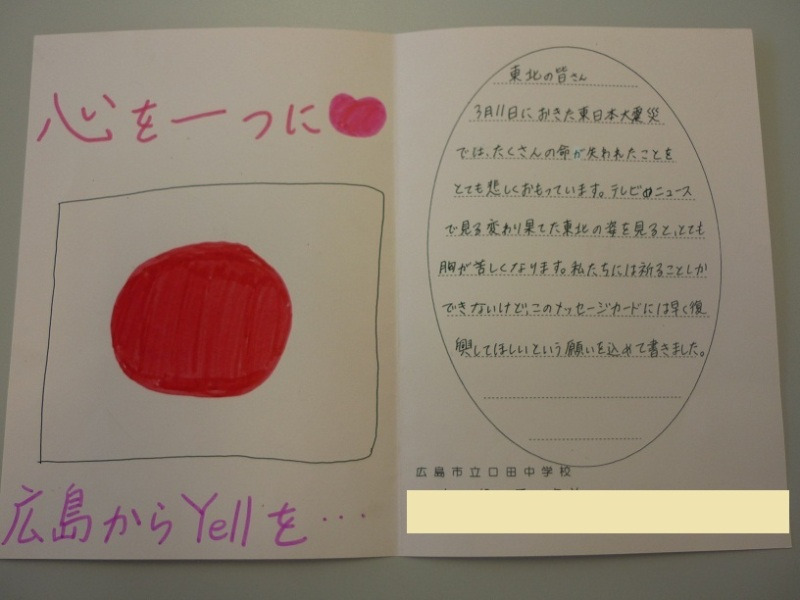 心を一つに
広島からYellを…
東北の皆さん
3月11日におきた東日本大震災
では、たくさんの命が失われたことを
とても悲しくおもっています。テレビのニュース
で見る変わり果てた東北の姿を見ると、とても
胸が苦しくなります。私たちには祈ることしか
できないけど、このメッセージカードには早く復
興してほしいという願いを込めて書きました。
広島市立口田中学校